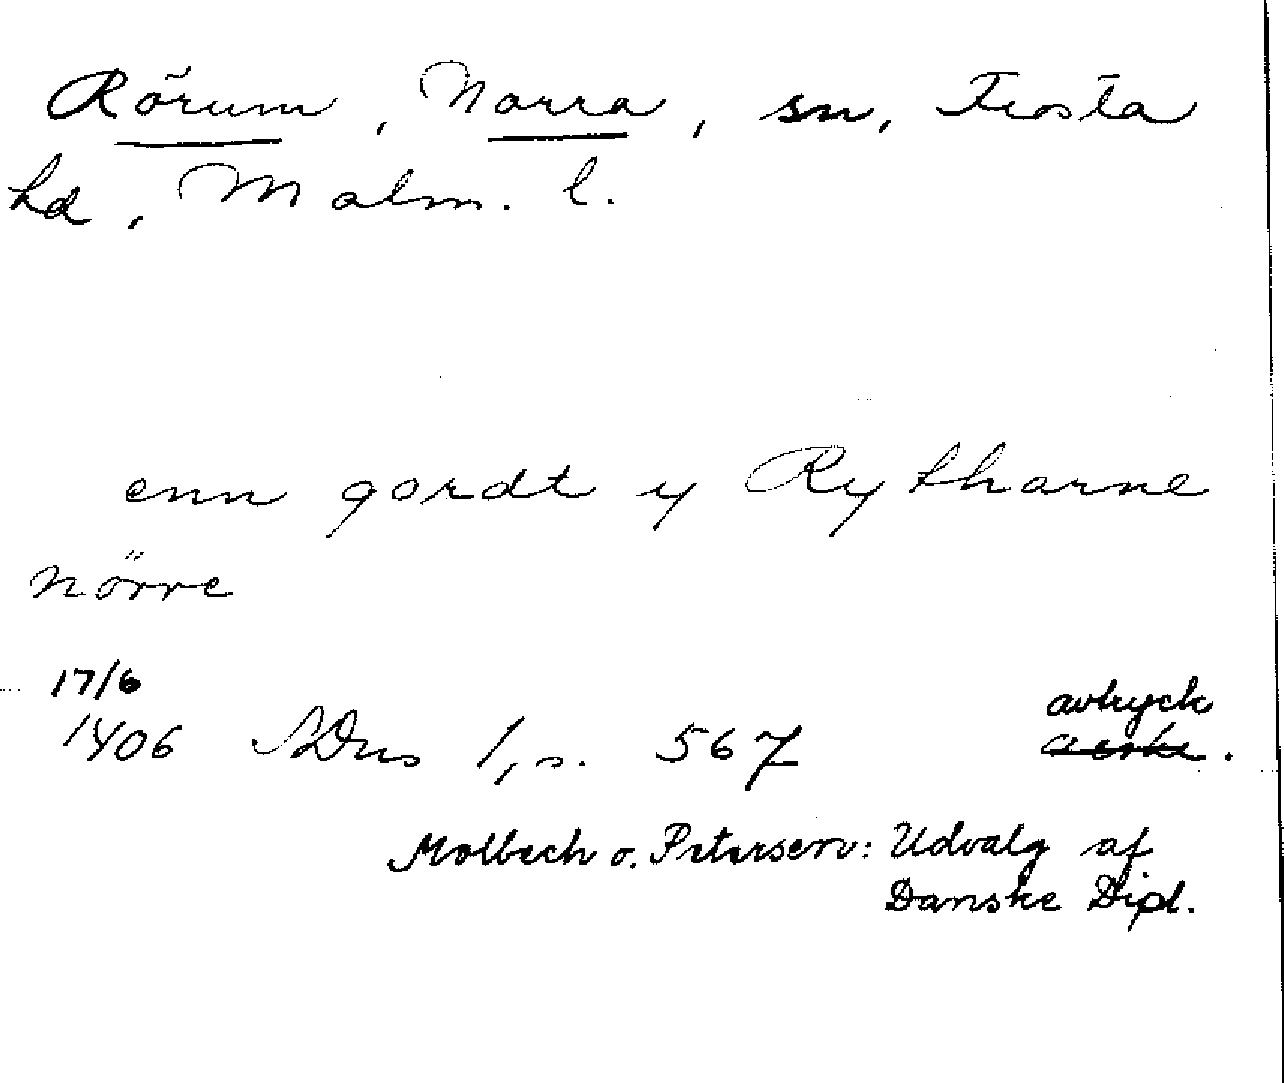 Rörum, Norra, sn, Frosta
hd, Malm. l.
enn gordt y Rytharne
nörre
17/6
1406 SDns 1, s. 567
avtryck
Molbech o. Petersen: Udvalg af
Danske Dipl.